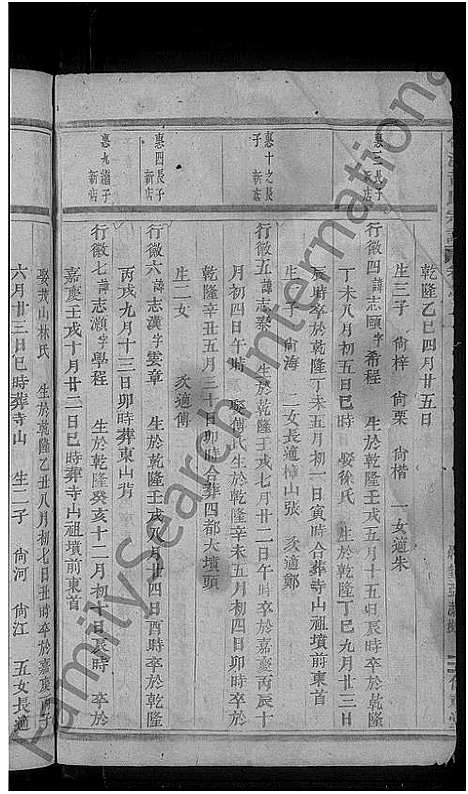 乾隆乙巳四月廿五日
生三子 尙梓 尙栗 尙楷 一女適朱
惠三長子 新店
行徽四諱志頤字希程 生於乾隆壬戌五月十五日辰時卒於乾隆
丁未八月初五日巳時 娶徐氏 生於乾隆丁巳九月廿三日
辰時卒於乾隆丁未五月初一日寅時合葬寺山祖墳前東首
生一子 尙海 二女長適樟山張 次適鄭
惠十之長子 新店
行徽五諱志泰 生於乾隆壬戌七月廿二日午時卒於嘉慶丙辰十
月初四日午時 娶傅氏生於乾隆辛未五月初四日卯時卒於
乾隆辛丑五月三十日卯時合葬四都大墳頭
生二女 次適傅
惠四長子 新店
行徽六諱志漢字雯章 生於乾隆壬戌八月廿四日酉時卒於乾隆
丙戌九月十三日卯時葬東山背
惠九議子 新店
行徽七諱志灝字學程 生於乾隆癸亥十二月初十日辰時 卒於
嘉慶壬戌十月廿二日巳時葬寺山祖墳前東首
娶茂山林氏 生於乾隆乙丑八月初七日丑時卒於嘉慶丙子
六月廿三日巳時葬寺山 生二子 尙河 尙江 五女長適
FamilySearch International